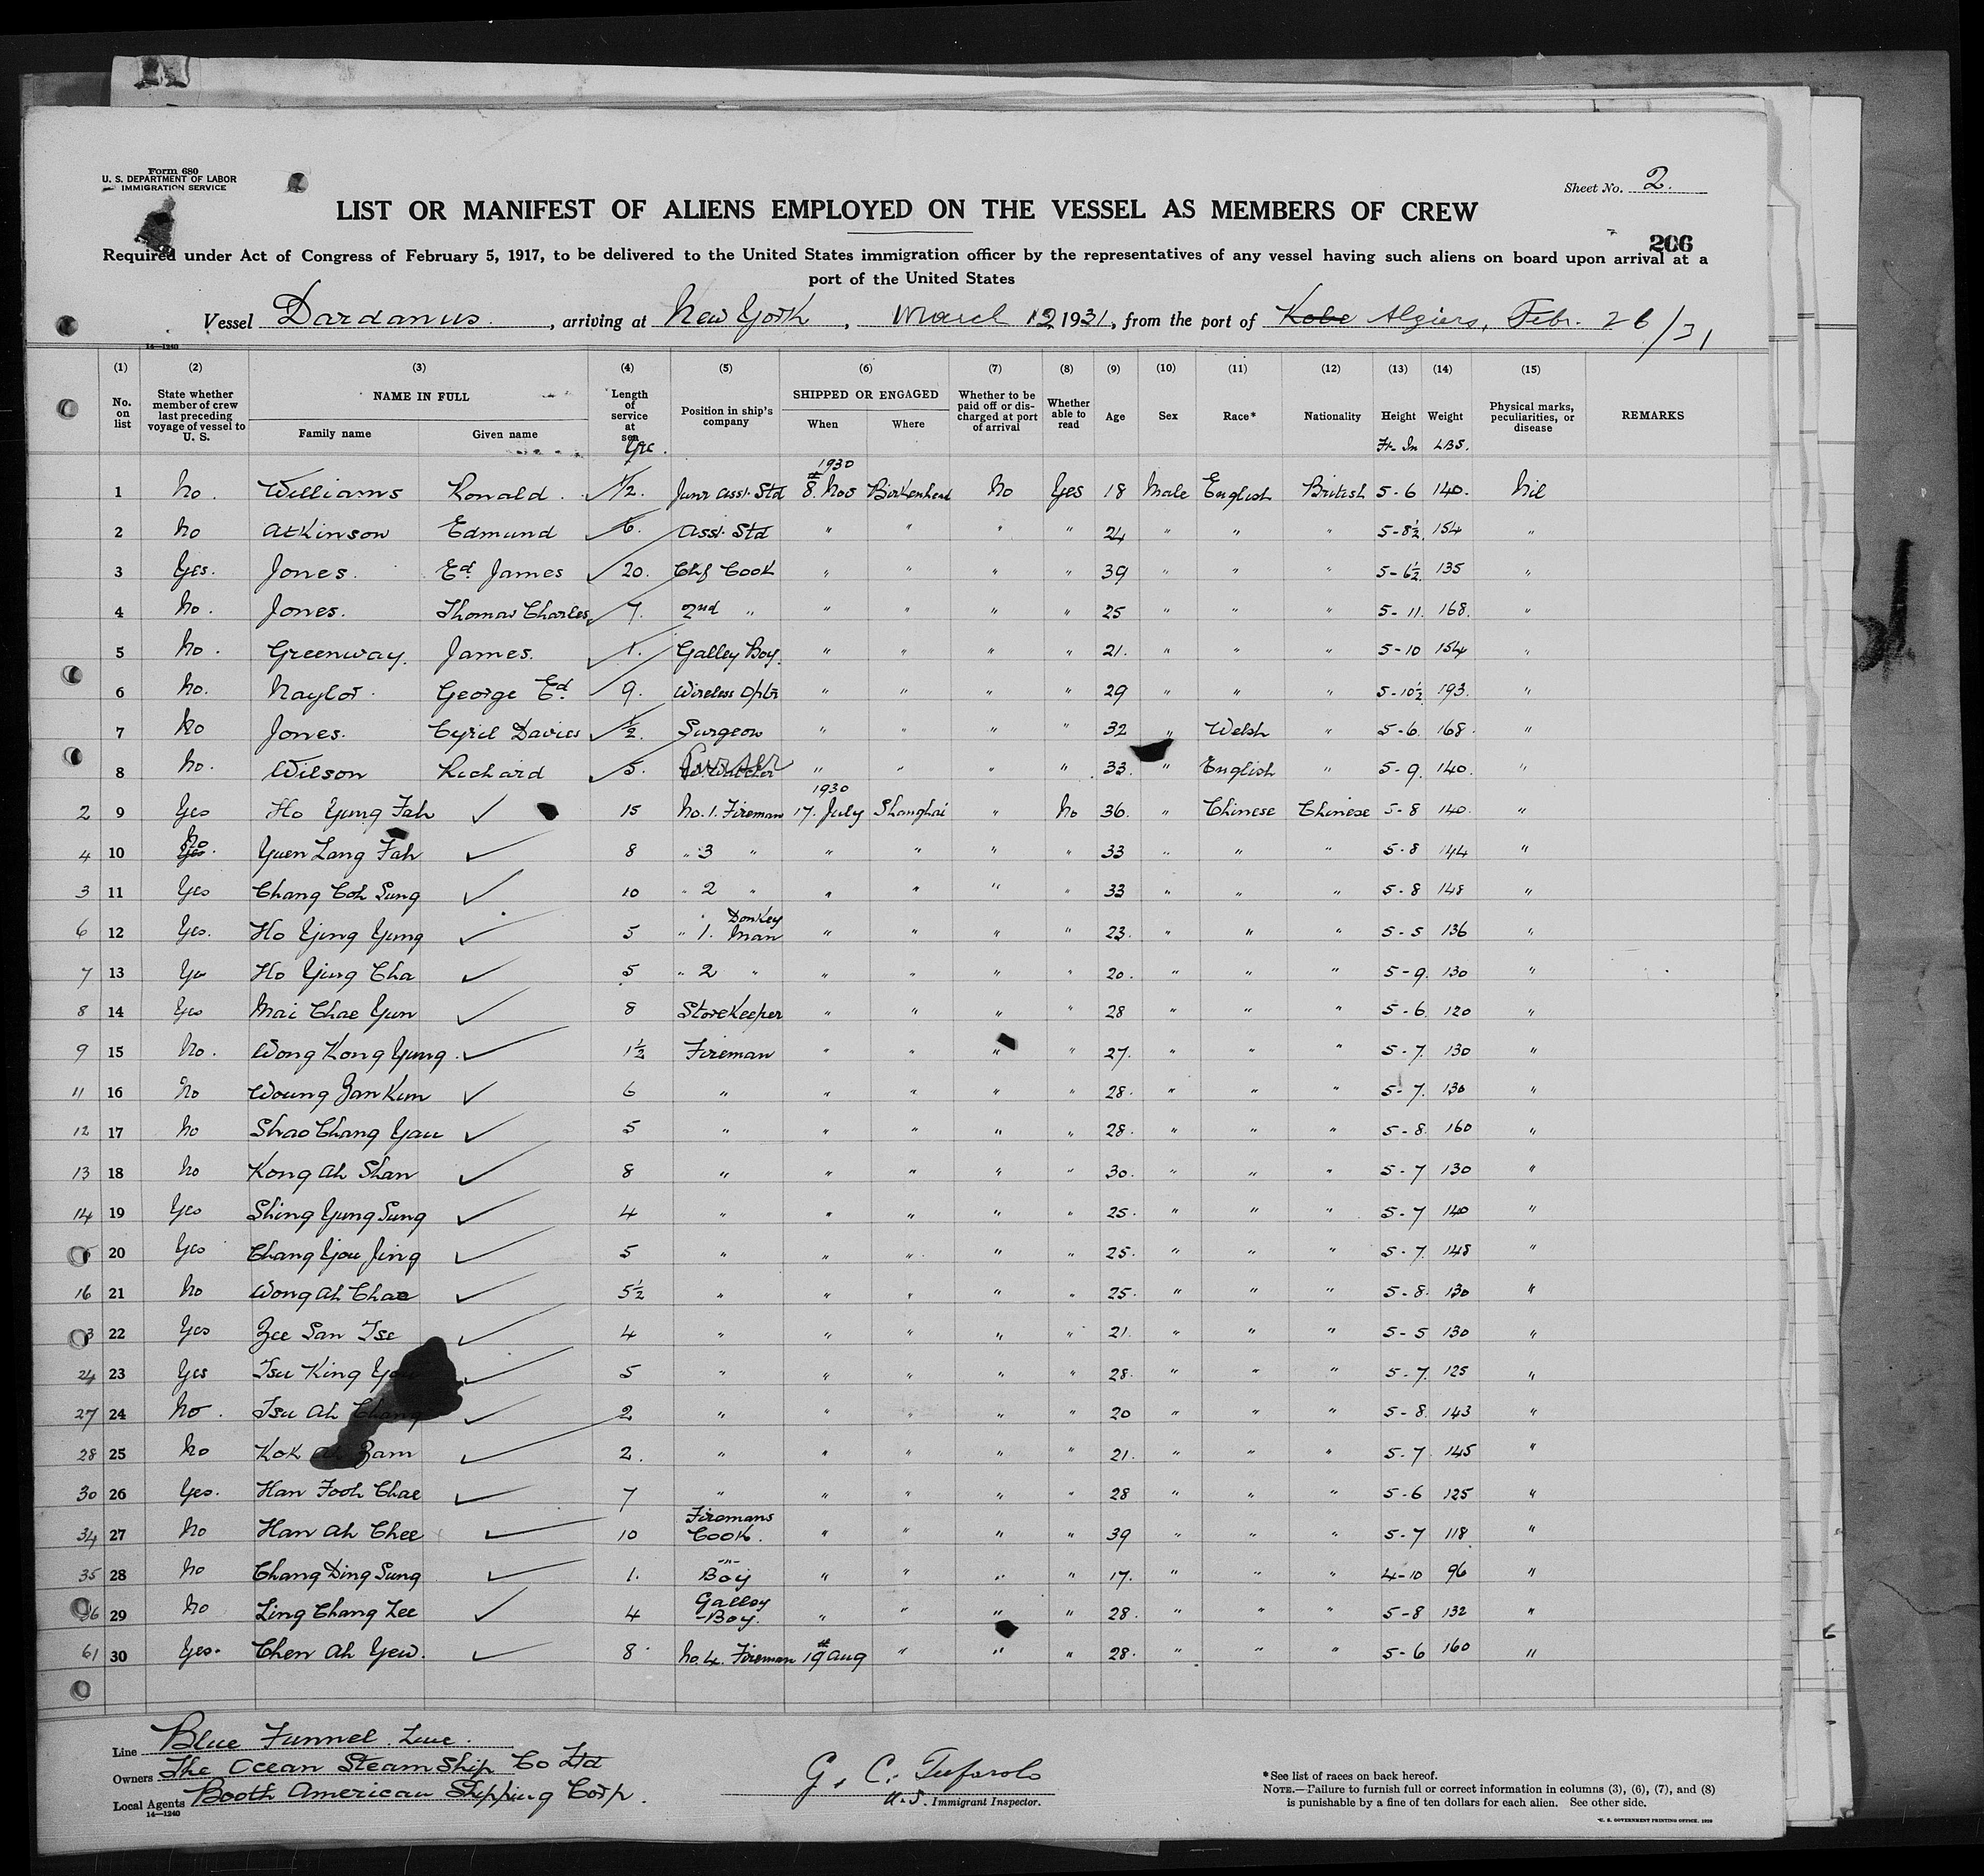 Form 680
U. S. DEPARTMENT OF LABOR
IMMIGRATION SERVICE
Sheet No. 2.
LIST OR MANIFEST OF ALIENS EMPLOYED ON THE VESSEL AS MEMBERS OF CREW
206
Required under Act of Congress of February 5, 1917, to be delivered to the United States immigration officer by the representatives of any vessel having such aliens on board upon arrival at a
port of the United States
Vessel Dardanus., arriving at New York, March 12 1931, from the port of Kobe Algiers, Febr. 26/31
14—1240
(1) (2) (3) (4) (5) (6) (7) (8) (9) (10) (11) (12) (13) (14) (15)
No. on list State whether member of crew last preceding voyage of vessel to U. S. NAME IN FULL Family name Given name Length of service at sea Position in ship's company SHIPPED OR ENGAGED When Where Whether to be paid off or discharged at port of arrival Whether able to read Age Sex Race* Nationality Height Weight Physical marks, peculiarities, or disease REMARKS
Yrs. Ft. In LBS.
1930
1 No. Williams Ronald. 1/2. Junr Asst. Std 8. Nov Birkenhead No Yes 18 Male English British 5-6 140. Nil
2 No Atkinson Edmund 6. Asst. Std " " " " 24 " " " 5-8½ 154 "
3 Yes. Jones. Ed. James 20. Chf Cook " " " " 39 " " " 5-6½ 135 "
4 No. Jones. Thomas Charles 7. 2nd " " " " " 25 " " " 5-11. 168. "
5 No. Greenway. James. 1. Galley Boy. " " " " 21. " " " 5-10 154 "
6 No. Naylor. George Ed. 9. Wireless Optr " " " " 29 " " " 5-10½ 193. "
7 No Jones. Cyril Davies ½. Surgeon " " " " 32 " Welsh " 5-6. 168. "
8 No. Wilson Richard 5. " " " " 33. " English " 5-9. 140. "
1930
2 9 Yes Ho Yung Fah 15 No. 1. Fireman 17. July Shanghai " No 36. " Chinese Chinese 5-8 140. "
4 10 No Yes. Yuen Lang Fah 8 " 3 " " " " " 33 " " " 5-8 144 "
3 11 Yes Chang Coh Sung 10 " 2 " " " " " 33 " " " 5-8 148 "
6 12 Yes. Ho Ying Yung 5 " 1. Donkey Man " " " " 23. " " " 5-5 136 "
7 13 Yes Ho Yung Cha 5 " 2 " " " " " 20. " " " 5-9. 130 "
8 14 Yes Mai Chae Yun 8 StoreKeeper " " " " 28 " " " 5-6. 120 "
9 15 No. Wong Kong Yung. 1½ Fireman " " " " 27. " " " 5-7. 130 "
11 16 No Woung Zan Kum 6 " " " " " 28. " " " 5-7. 130 "
12 17 No Shao Chang Yau 5 " " " " " 28. " " " 5-8. 160 "
13 18 No Kong Ah Shan 8 " " " " " 30. " " " 5-7 130 "
14 19 Yes Shing Yung Sung 4 " " " " " 25. " " " 5-7 140 "
20 Yes Chang You Jing 5 " " " " " 25. " " " 5-7. 148 "
16 21 No Wong Ah Chae 5½ " " " " " 25. " " " 5-8. 130 "
22 Yes Zee San Tse 4 " " " " " 21. " " " 5-5 130 "
24 23 Yes Tsu King 5 " " " " " 28. " " " 5-7. 125 "
27 24 No. Tsu Ah Chang 2 " " " " " 20 " " " 5-8. 143 "
28 25 No Kok Ah Zam 2. " " " " " 21. " " " 5-7. 145 "
30 26 Yes. Han Fooh Chae 7 " " " " " 28 " " " 5-6 125 "
34 27 No Han Ah Chee 10 Firemans Cook. " " " " 39 " " " 5-7 118 "
35 28 No Chang Ding Sung 1. -"- Boy " " " " 17. " " " 4-10 96 "
36 29 No Ling Chang Zee 4 Galley -Boy. " " " " 28. " " " 5-8 132 "
61 30 Yes. Chen Ah Yew. 8. No. 4. Fireman 19 Aug " " " 28. " " " 5-6 160 "
Line Blue Funnel Line.
Owners The Ocean SteamShip Co Ltd
Local Agents Booth American Shipping Corp.
14—1240
G. C. Tufarolo
U. S. Immigrant Inspector.
*See list of races on back hereof.
NOTE.—Failure to furnish full or correct information in columns (3), (6), (7), and (8)
is punishable by a fine of ten dollars for each alien. See other side.
U. S. GOVERNMENT PRINTING OFFICE